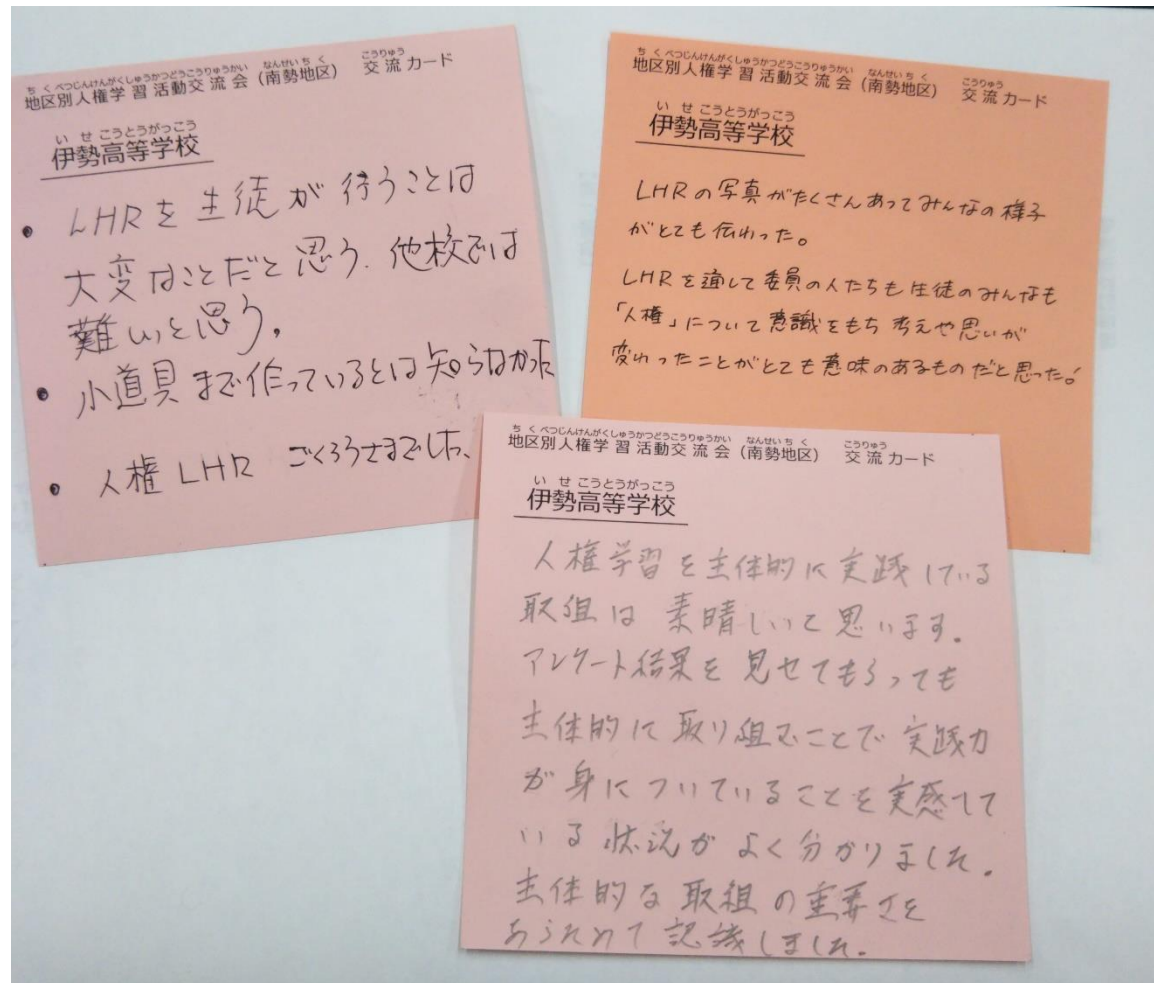 ちくべつじんけんがくしゅうかつどうこうりゅうかい なんせいちく こうりゅう
地区別人権学習活動交流会(南勢地区) 交流カード
いせこうとうがっこう
伊勢高等学校
• LHRを生徒が行うことは
大変なことだと思う. 他校では
難しいと思う。
• 小道具まで作っているとは知らなかった
• 人権LHR ごくろうさまでした、
ちくべつじんけんがくしゅうかつどうこうりゅうかい なんせいちく こうりゅう
地区別人権学習活動交流会(南勢地区) 交流カード
いせこうとうがっこう
伊勢高等学校
LHRの写真がたくさんあってみんなの様子
がとても伝わった。
LHRを通して委員の人たちも生徒のみんなも
「人権」について意識をもち考えや思いが
変わったことがとても意味のあるものだと思った!
ちくべつじんけんがくしゅうかつどうこうりゅうかい なんせいちく こうりゅう
地区別人権学習活動交流会(南勢地区) 交流カード
いせこうとうがっこう
伊勢高等学校
人権学習を主体的に実践している
取組は素晴しいと思います。
アンケート結果を見せてもらっても
主体的に取り組むことで実践力
が身についていることを実感して
いる状況がよく分かりました。
主体的な取組の重要さを
あらためて認識しました。